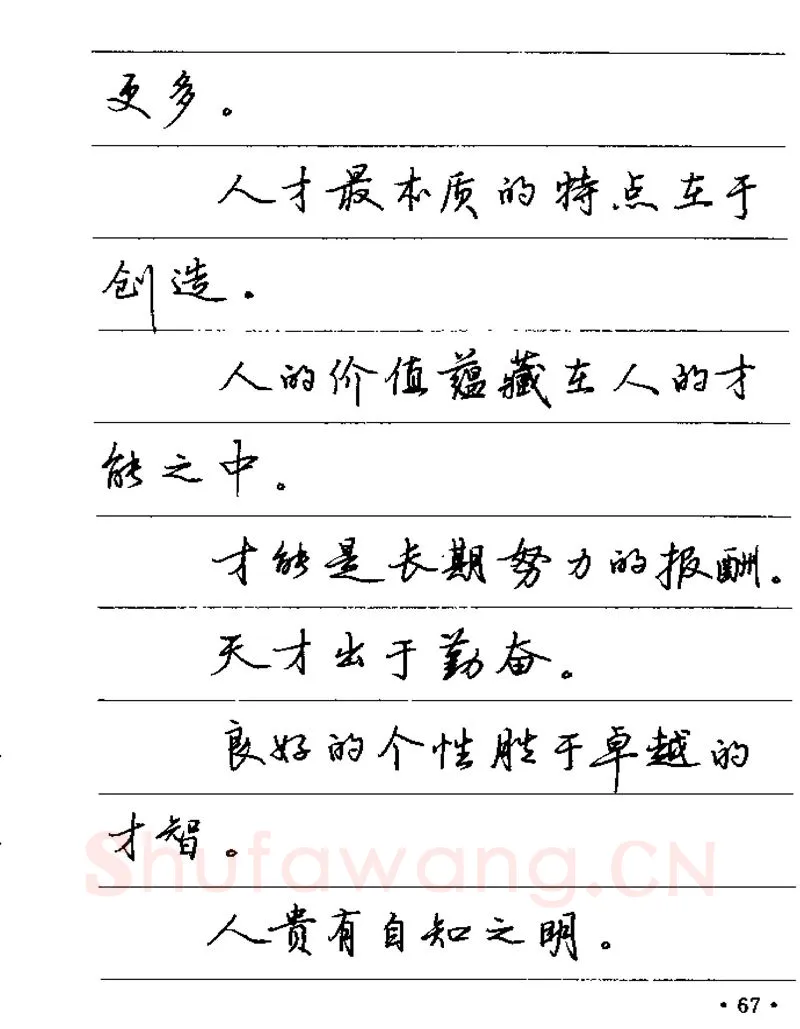 更多。
人才最本质的特点在于
创造。
人的价值蕴藏在人的才
能之中。
才能是长期努力的报酬。
天才出于勤奋。
良好的个性胜于卓越的
才智。
Shufawang.CN
人贵有自知之明。
·67·